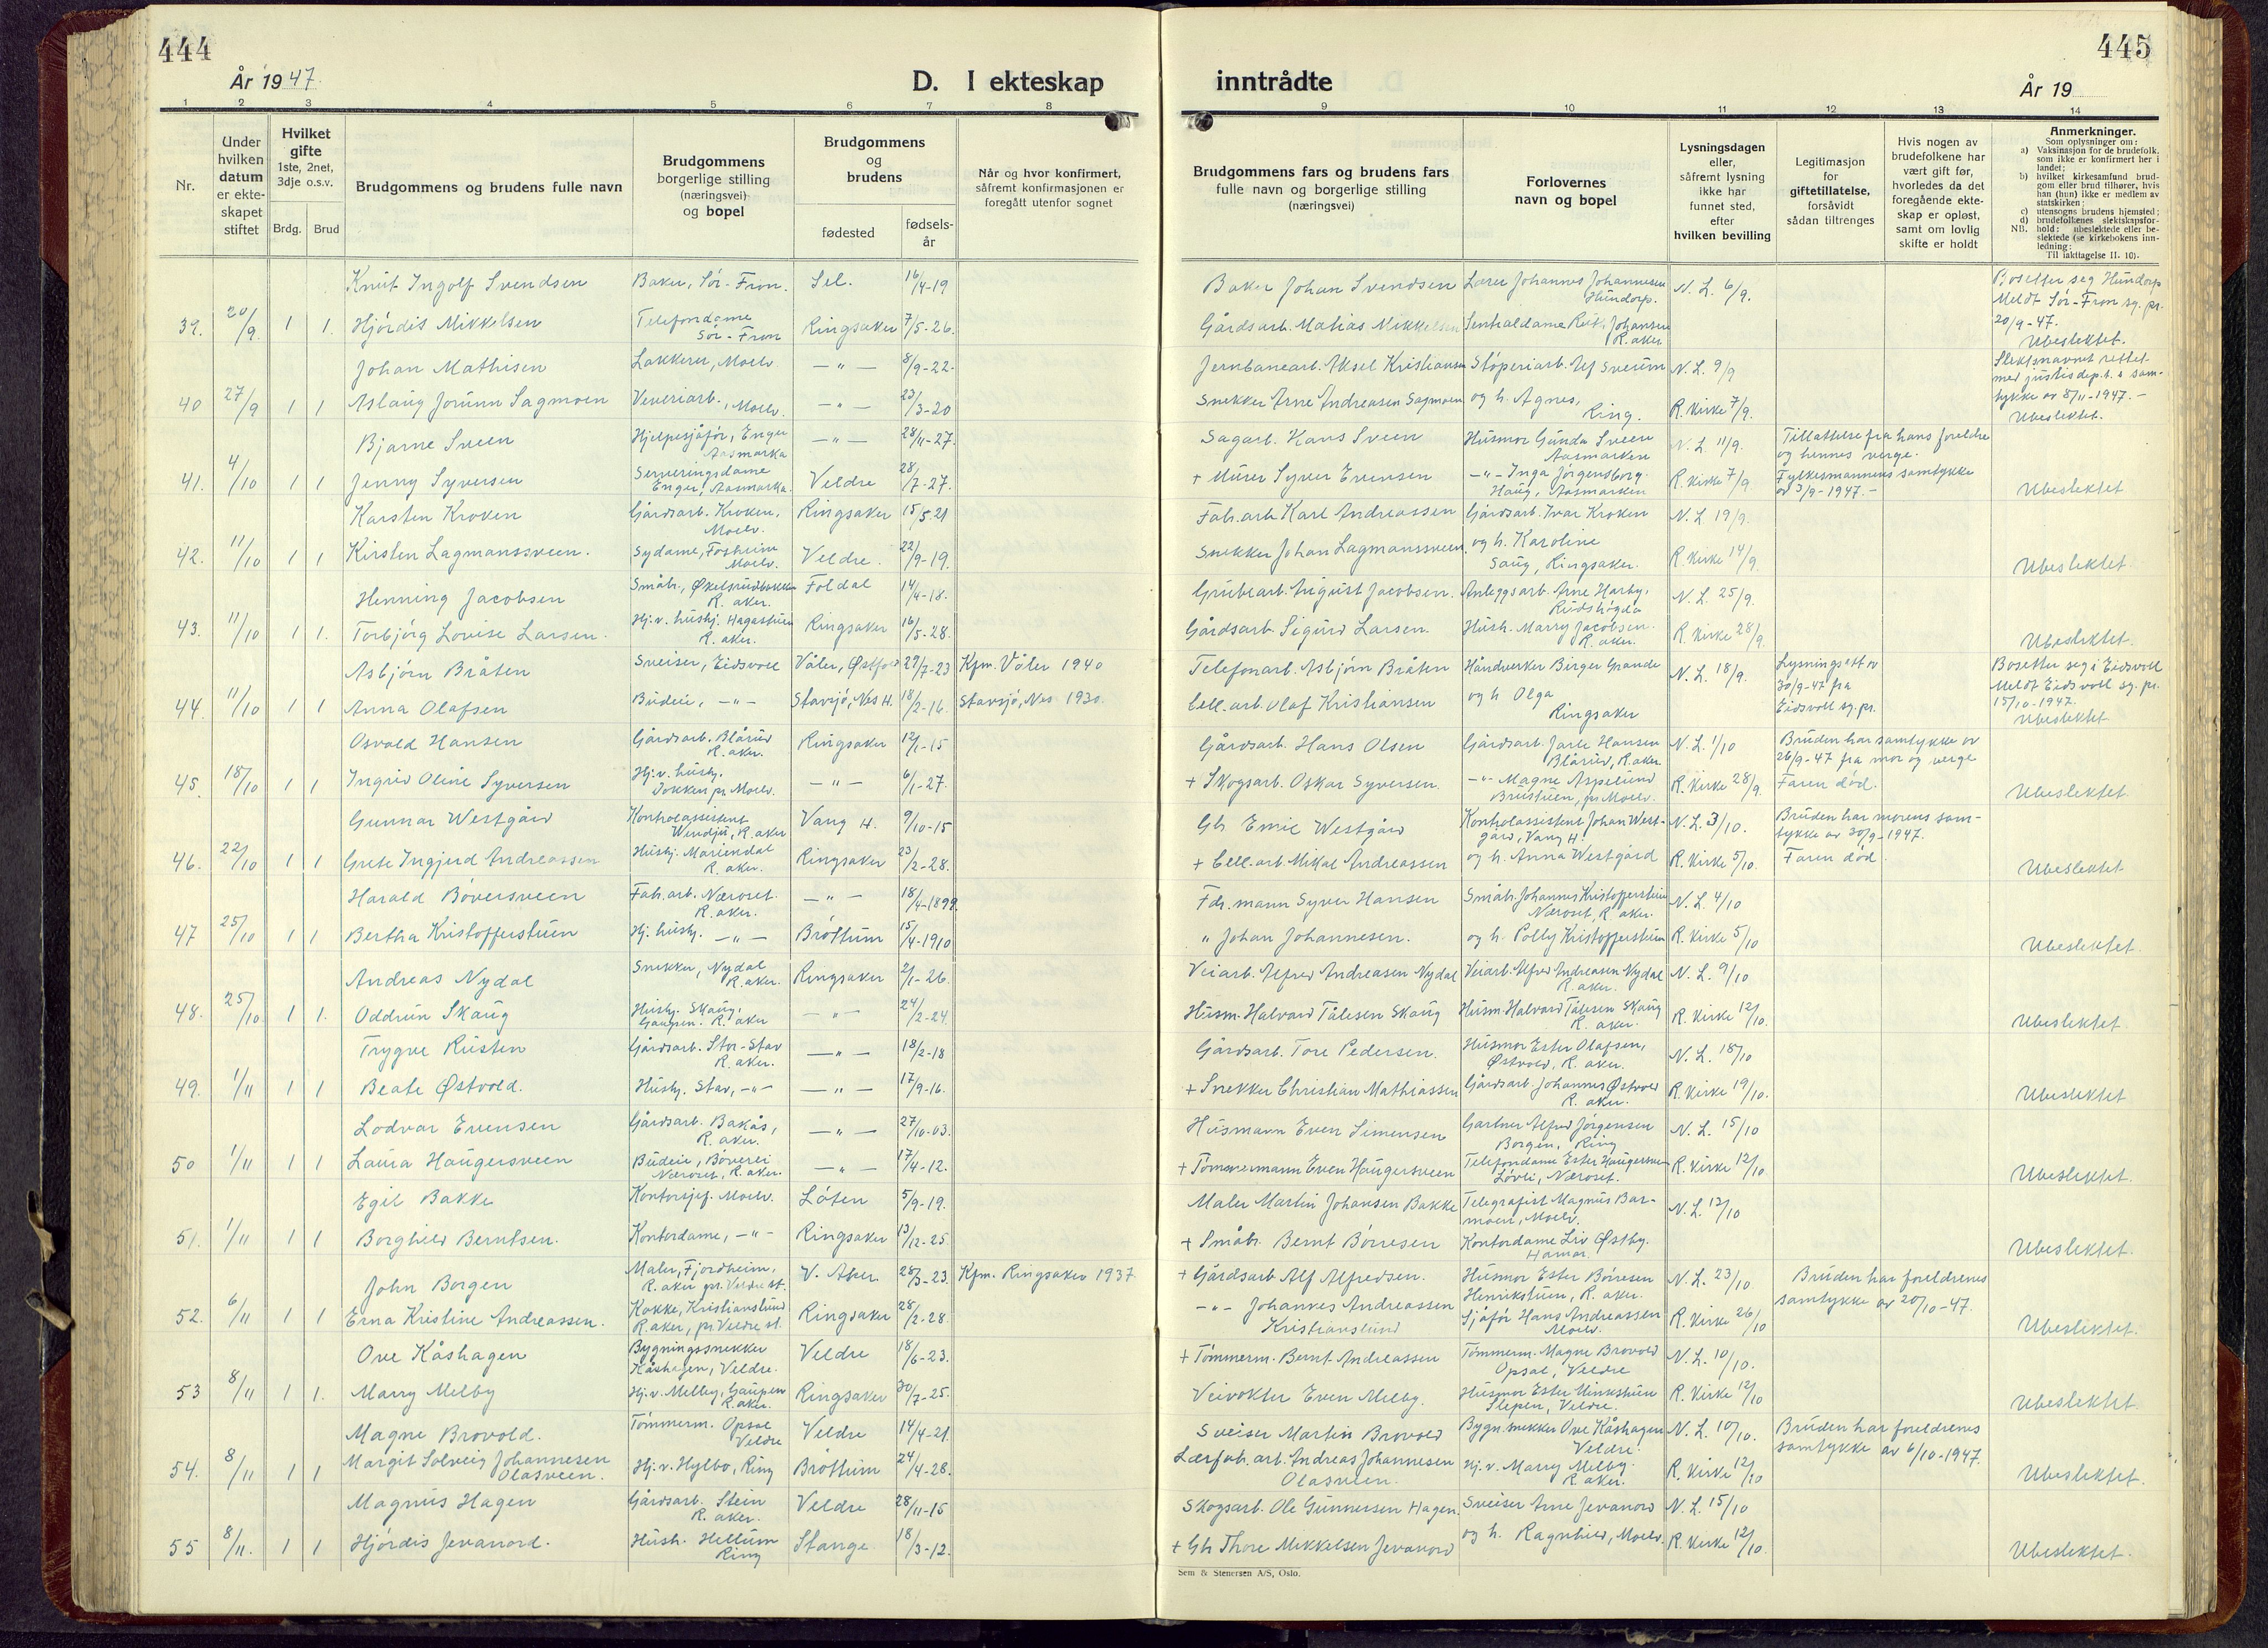 444
År 1947.
D. I ekteskap
1 2 3 4 5 6 7 8
Nr.
Under hvilken datum er ekte-skapet stiftet
Hvilket gifte
1ste, 2net, 3dje o.s.v.
Brdg. Brud
Brudgommens og brudens fulle navn
Brudgommens borgerlige stilling (næringsvei) og bopel
Brudgommens og brudens
fødested
fødsels-år
Når og hvor konfirmert, såfremt konfirmasjonen er foregått utenfor sognet
Knut Ingolf Svendsen Baker, Sør-Fron. Sel. 16/4-19
39. 20/9 1 1. Hjördis Mikkelsen Telefondame Sör-Fron Ringsaker 7/5-26.
Johan Mathisen Lakkerer, Moelv. —"— 8/9-22.
40 27/9 1 1 Aslaug Jorunn Sagmoen Veveriarb., Moelv. —"— 23/3-20
Bjarne Sveen Hjelpesjåför, Enger Aasmarka —"— 28/11-27.
41. 4/10 1 1 Jenny Syversen Serveringsdame Enger, Aasmarka. Veldre 28/7-27.
Karsten Kroken Gårdsarb. Kroken, Moelv. Ringsaker 15/5 21
42. 11/10 1 1 Kirsten Lagmanssveen. Sydame, Fosheim Moelv. Veldre. 22/9-19.
Henning Jacobsen R. aker. Foldal 14/4-18.
43. 11/10 1 1. Torbjörg Lovise Larsen. Hj. v. hush. Hagastuen R. aker. Ringsaker 16/5-28.
Asbjörn Bråten Sveiser, Eidsvoll Våler, Østfold 29/7-23 Kfm. Våler 1940
44. 11/10 1 1 Anna Olafsen Budeie, —"— Stavsjö, Nes H. 18/2-16. Stavsjö, Nes 1930.
Osvald Hansen Gårdsarb. Blårud R. aker. Ringsaker 12/1-15
45. 18/10 1 1 Ingrid Oline Syversen Hj. v. hush. Dokken pr. Moelv. —"— 6/1-27.
Gunnar Westgård Kontrolassistent Wendju, R. aker Vang H. 9/10-15
46. 22/10 1 1 Grete Ingjerd Andreassen Hushj. Mariendal R. aker. Ringsaker 23/2-28.
Harald Böversveen Fab. arb. Næroset. R. aker. —"— 18/4-1899.
47 25/10 1 1 Bertha Kristofferstuen Hj. hush. —"— Bröttum 15/4-1910
Andreas Nydal Snekker, Nydal R. aker. Ringsaker 2/1-26.
48. 25/10. 1 1. Oddrun Skaug Hushj. Skaug, Gaupen. R. aker —"— 24/2-24.
Trygve Rusten Gårdsarb. Stor-Stav R. aker. —"— 18/2-18
49. 1/11 1 1 Beate Østvold. Hushj. Stav, —"— —"— 17/9-16.
Lodvar Evensen Gårdsarb. Bakås, R. aker. —"— 27/10-03.
50 1/11 1 1 Laura Haugersveen Budeie, Böverli Næroset, R. aker. —"— 17/4-12.
Egil Bakke Kontorsjef. Moelv. Löten 5/9-19.
51. 1/11 1 1 Borghild Berntsen. Kontordame, —"— Ringsaker 13/12-25.
John Borgen Maler, Fjordheim, R. aker pr. Veldre st. V. Aker. 28/3-23. Kfm. Ringsaker 1937.
52. 6/11 1 1 Erna Kristine Andreassen. Kokke, Kristianslund R. aker, pr. Veldre st. Ringsaker 28/2-28.
Ove Kåshagen Bygningssnekker Kåshagen, Veldre. Veldre 18/6-23.
53 8/11 1 1. Marry Melby Hj. v. Melby, Gaupen R. aker. Ringsaker 30/7-25.
Magne Brovold. Tömmerm. Opsal Veldre Veldre 14/4-21.
54. 8/11 1 1 Margit Solveig Johannesen Olasveen. Hj. v. Hylbo, Ring Bröttum 24/4-28.
Magnus Hagen Gårdsarb. Stein R. aker. Veldre 28/11-15
55 8/11. 1 1 Hjördis Jevanord. Hush. Hellum Ring Stange. 18/3-12.
445
inntrådte
År 19
9 10 11 12 13 14
Brudgommens fars og brudens fars fulle navn og borgerlige stilling (næringsvei)
Forlovernes navn og bopel
Lysningsdagen eller, såfremt lysning ikke har funnet sted, efter hvilken bevilling
Legitimasjon for giftetillatelse, forsåvidt sådan tiltrenges
Hvis nogen av brudefolkene har vært gift før, hvorledes da det foregående ekte-skap er opløst, samt om lovlig skifte er holdt
Anmerkninger.
Som oplysninger om:
a) Vaksinasjon for de brudefolk, som ikke er konfirmert her i landet;
b) hvilket kirkesamfund brud-gom eller brud tilhører, hvis han (hun) ikke er medlem av statskirken;
c) utensogns brudens hjemsted;
d) brudefolkenes slektskapsfor-hold: ubeslektede eller be-slektede (se kirkebokens inn-ledning;
NB.
Til iakttagelse II. 10).
Baker Johan Svendsen Lærer Johannes Johannesen Hundorp. N. L. 6/9. Bosetter seg Hundorp
Gårdsarb. Matias Mikkelsen Sentraldame Ruth Johansen R. aker Meldt Sör-Fron sg. pr. 20/9-47. Ubeslektet.
Jernbanearb. Aksel Kristiansen Stöperiarb. Alf Sveum N. L. 9/9 Slektsnavnet rettet
Snekker Arne Andreasen Sagmoen og h. Agnes, Ring. R. Kirke 7/9. med justisdep.t.s sam-tykke av 8/11-1947.- Ubeslektet.
Sagarb. Hans Sveen Husmor Gunda Sveen Aasmarken N. L. 11/9. Tillattelse fra hans foreldre og hennes verge.
+ Murer Syver Evensen —"— Inga Jörgensborg. Haug, Aasmarken R. Kirke 7/9. Fylkesmannens samtykke av 3/9-1947.- Ubeslektet
Fab. arb. Karl Andreassen Gårdsarb. Ivar Kroken N. L 19/9.
Snekker Johan Lagmanssveen og h. Karoline Saug, Ringsaker. R. Kirke 14/9. Ubeslektet.
Grubearb. August Jacobsen. Anleggsarb. Arne Harby, Rudshögda N. L. 25/9.
Gårdsarb. Sigurd Larsen. Hush. Marry Jacobsen. R. aker. R. Kirke 28/9. Ubeslektet.
Telefonarb. Asbjörn Bråten Håndverker Birger Grande N. L. 18/9. Lysningsatt av 30/9-47 fra Eidsvoll sg. pr. Bosetter seg i Eidsvoll
Cell. arb. Olaf Kristiansen og h Olga Ringsaker Meldt Eidsvoll sg. pr. 15/10-1947. Ubeslektet
Gårdsarb. Hans Olsen Gårdsarb. Jarle Hansen Blårud, R. aker N. L. 1/10 Bruden har samtykke av 26/9-47 fra mor og verge
+ Skogsarb. Oskar Syversen. —"— Magne Aspelund Brustuen, pr. Moelv. R. Kirke 28/9. Faren död. Ubeslektet.
Gb. Emil Westgård Kontrolassistent Johan West-gård, Vang H. N. L. 3/10. Bruden har morens sam-tykke av 30/9-1947.
+ Cell. arb. Mikal Andreassen og h. Anna Westgård R. Kirke 5/10. Faren död. Ubeslektet
Fdr. mann Syver Hansen Småbr. Johannes Kristofferstuen Næroset, R. aker. N. L. 4/10
" Johan Johannesen. og h. Polly Kristofferstuen R. Kirke 5/10 Ubeslektet.
Veiarb. Alfred Andreasen Nydal Veiarb. Alfred Andreasen Nydal R. aker. N. L. 9/10
Husm. Halvard Tålesen Skaug Husm. Halvard Tålesen Skaug R. aker. R. Kirke 12/10. Ubeslektet.
Gårdsarb. Tore Pedersen. Husmor Ester Olafsen, Østvold, R. aker. N. L. 18/10
+ Snekker Christian Mathiassen Gårdsarb. Johannes Østvold R. aker. R. Kirke 19/10. Ubeslektet
Husmann Even Simensen Gartner Alfred Jörgensen Borgen, Ring N. L. 15/10
+ Tömmermann Even Haugersveen Telefondame Ester Haugersveen Lövli, Næroset. R. Kirke 12/10 Ubeslektet.
Maler Martin Johansen Bakke Telegrafist Magnus Bar-moen, Moelv. N. L. 13/10
+ Småbr. Bernt Börresen Kontordame Liv Østby. Hamar. Ubeslektet.
+ Gårdsarb Alf Alfredsen. Husmor Ester Börresen Henrikstuen, R. aker. N. L. 23/10 Bruden har foreldrenes samtykke av 20/10-47.
—"— Johannes Andreassen Kristianslund Sjåför Hans Andreassen Moelv. R. Kirke 26/10 Ubeslektet.
+ Tömmerm. Bernt Andreassen Tömmerm. Magne Brovold Opsal, Veldre N. L. 10/10.
Veivokter Even Melby. Husmor Ester Slepen, Veldre. R. Kirke 12/10 Ubeslektet.
Sveiser Martin Brovold Bygn. snekker Ove Kåshagen Veldre. N. L. 10/10. Bruden har foreldrenes samtykke av 6/10-1947.
Lærfab. arb. Andreas Johannesen Olasveen. Hj. v. Marry Melby. R. aker. R. Kirke 12/10 Ubeslektet.
Skogsarb. Ole Gunnersen Hagen. Sveiser Arne Jevanord N. L. 15/10
+ Gb Thore Mikkelsen Jevanord og h. Ragnhild, Moelv. R. Kirke 12/10. Ubeslektet.
Sem & Stenersen A/S, Oslo.